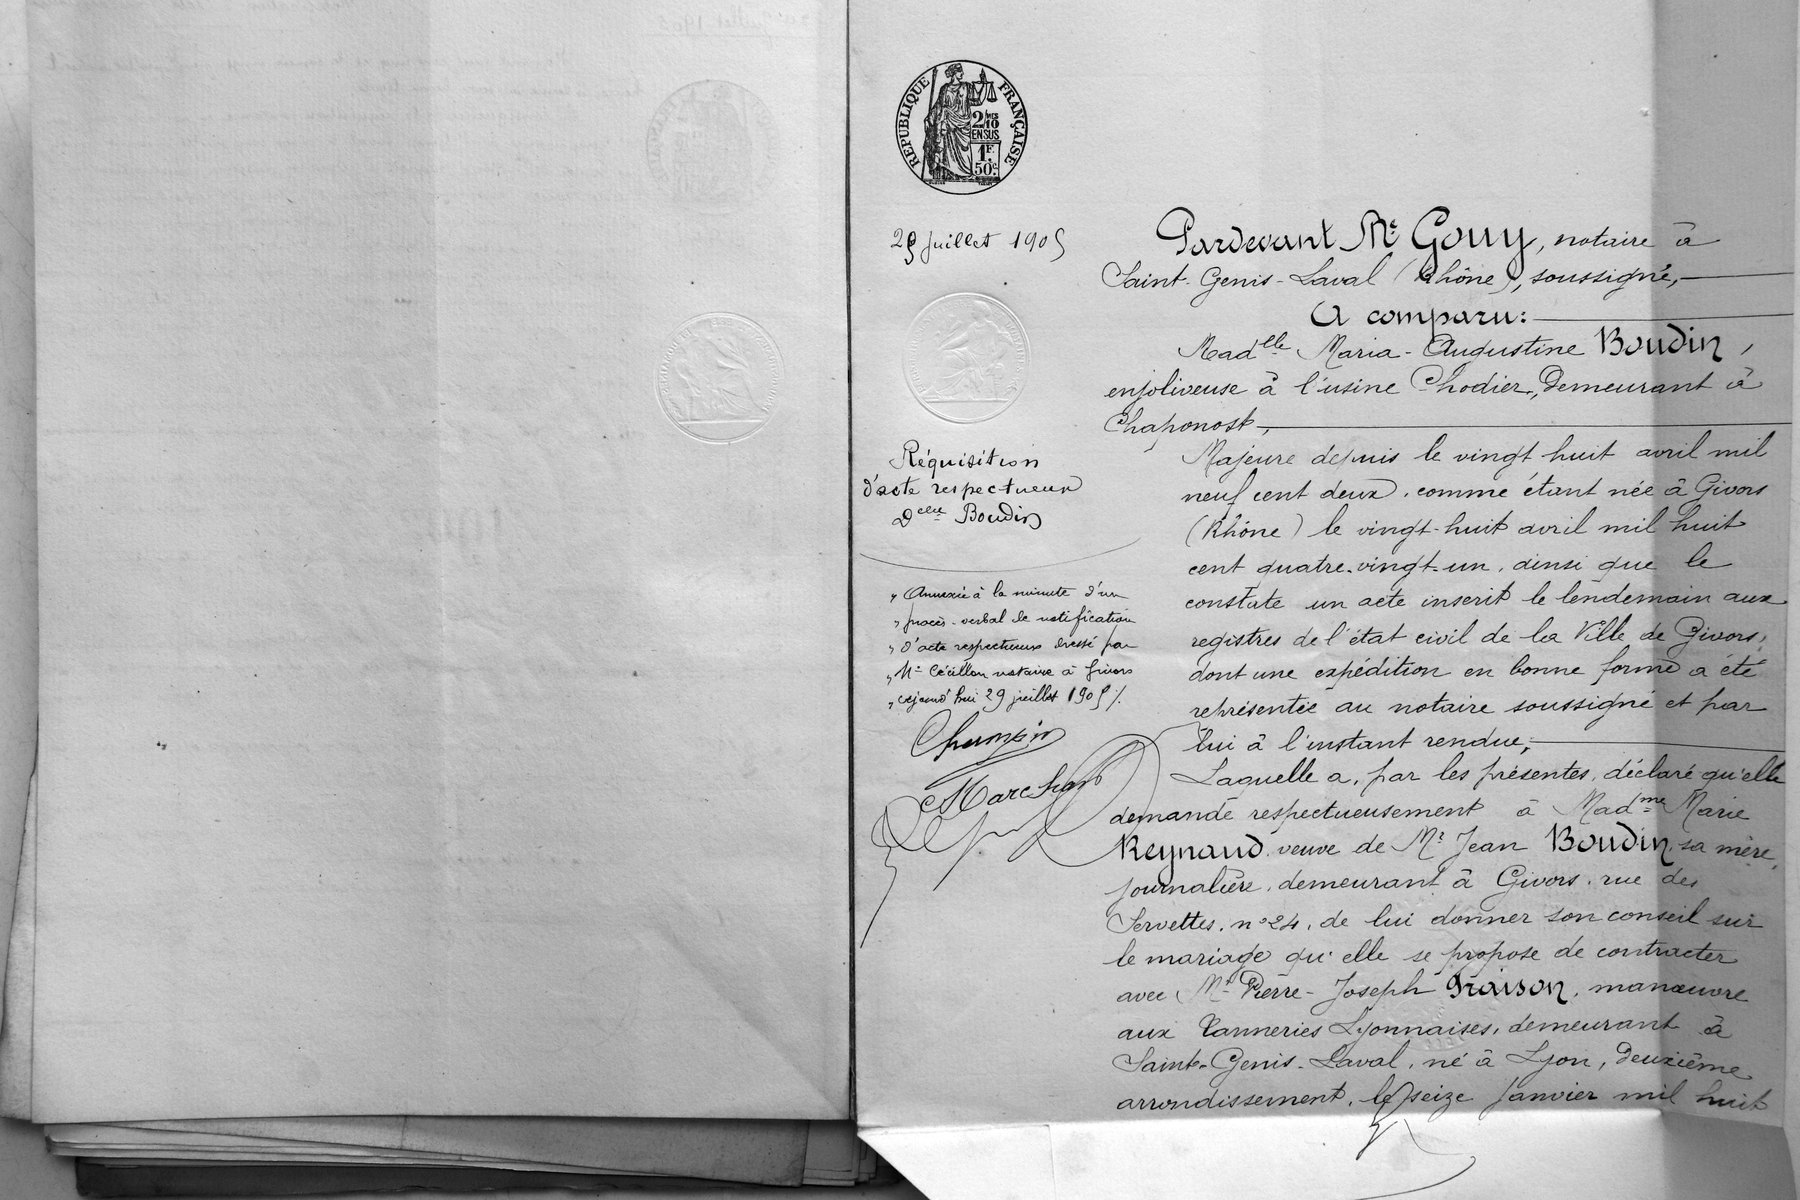 RÉPUBLIQUE FRANÇAISE
2/10
EN SUS
1F.
50c.
25 juillet 1905
Réquisition
d'acte respectueux
Delle Boudin
" Annexé à la minute d'un
" procès-verbal de notification
" d'acte respectueux dressé par
" Me Cécillon notaire à Givors
" cejourd'hui 29 juillet 1905 ./.
Marchand
Pardevant Me Gouy, notaire à
Saint-Genis-Laval (Rhône), soussigné,
A comparu:
Madelle Maria-Augustine Boudin,
enjoliveuse à l'usine Chodier, demeurant à
Chaponost,
Majeure depuis le vingt huit avril mil
neuf cent deux, comme étant née à Givors
(Rhône) le vingt-huit avril mil huit
cent quatre-vingt-un, ainsi que le
constate un acte inscrit le lendemain aux
registres de l'état civil de la Ville de Givors,
dont une expédition en bonne forme a été
représentée au notaire soussigné et par
lui à l'instant rendue,
Laquelle a, par les présentes, déclaré qu'elle
demande respectueusement à Madme Marie
Reynaud, veuve de Mr Jean Boudin, sa mère,
journalière, demeurant à Givors, rue des
Servettes, n° 24, de lui donner son conseil sur
le mariage qu'elle se propose de contracter
avec Mr Pierre-Joseph Fraison, manœuvre
aux Tanneries Lyonnaises, demeurant à
Saint-Genis-Laval, né à Lyon, deuxième
arrondissement, le seize janvier mil huit